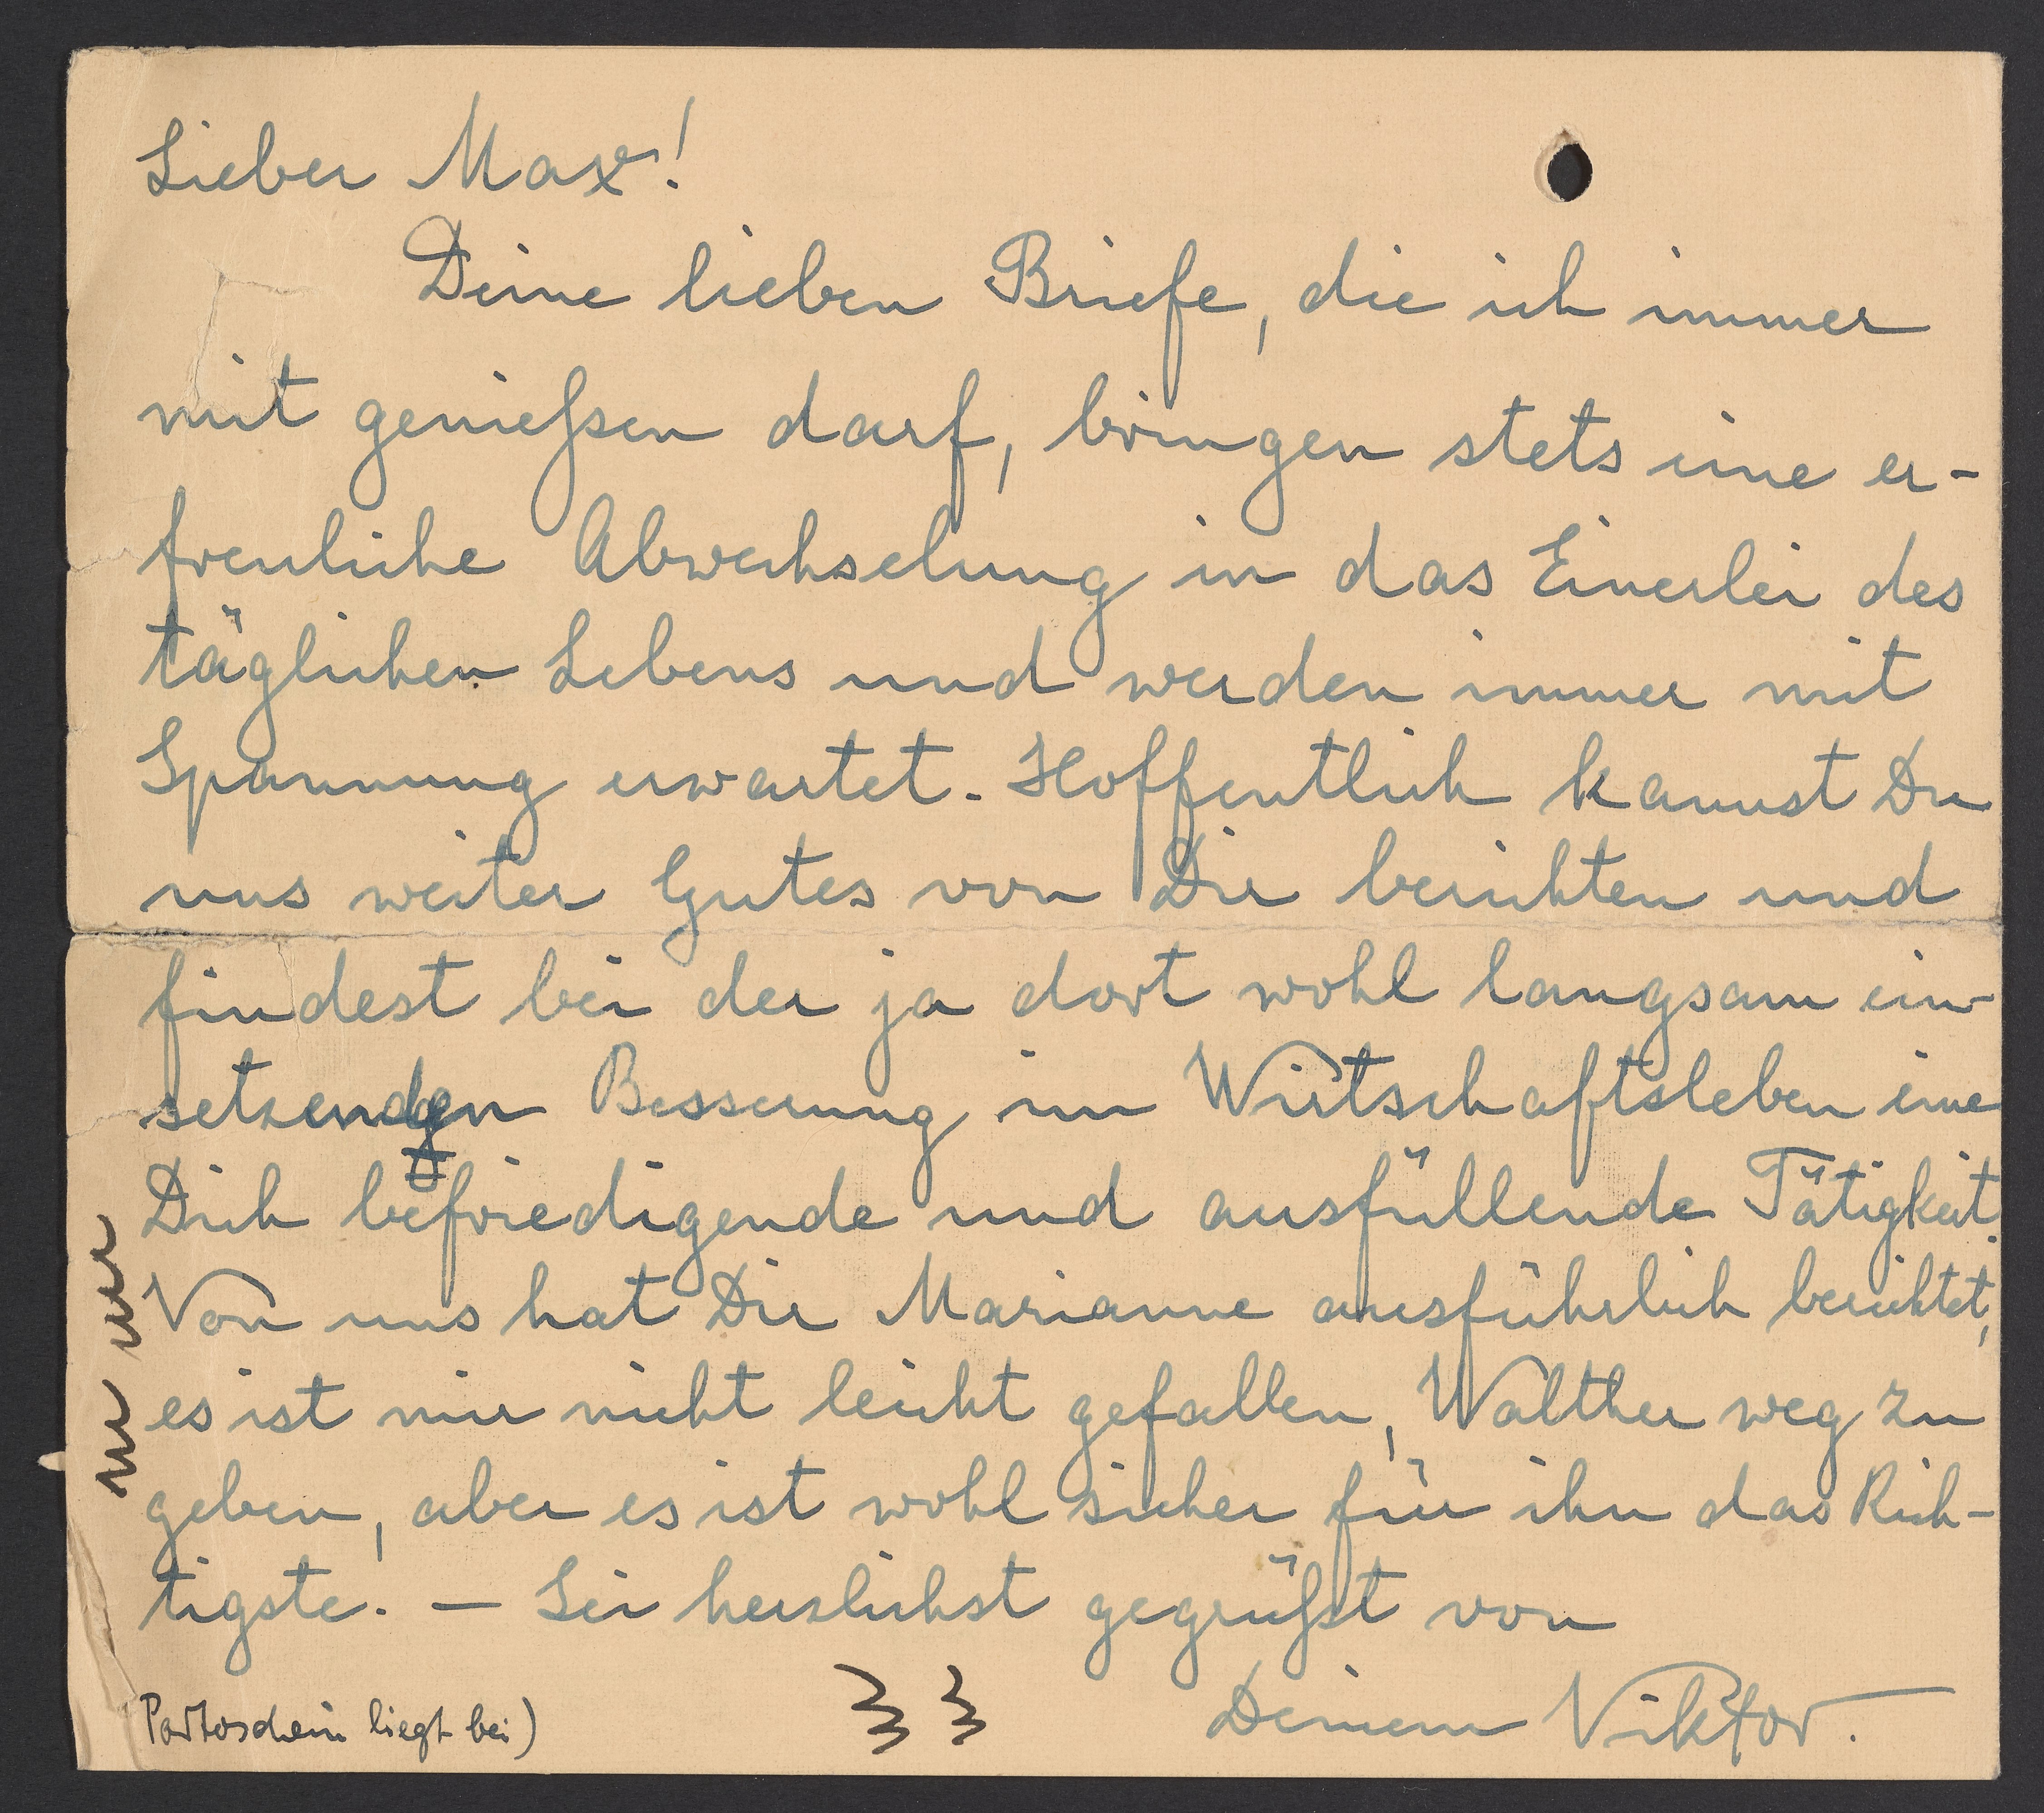 Lieber Max!
Deine lieben Briefe, die ich immer
mit genießen darf, bringen stets eine er-
freuliche Abwechselung in das Einerlei des
täglichen Lebens und werden immer mit
Spannung erwartet. Hoffentlich kannst Du
uns weiter Gutes von Dir berichten und
findest bei der ja dort wohl langsam ein-
setzenden Besserung im Wirtschaftsleben eine
Dich befriedigende und ausfüllende Tätigkeit.
Von uns hat Dir Marianne ausführlich berichtet,
es ist mir nicht leicht gefallen, Walther weg zu
geben, aber es ist wohl sicher für ihn das Rich-
tigste. — Sei herzlichst gegrüßt von
Deinem Viktor.
Portoschein liegt bei)